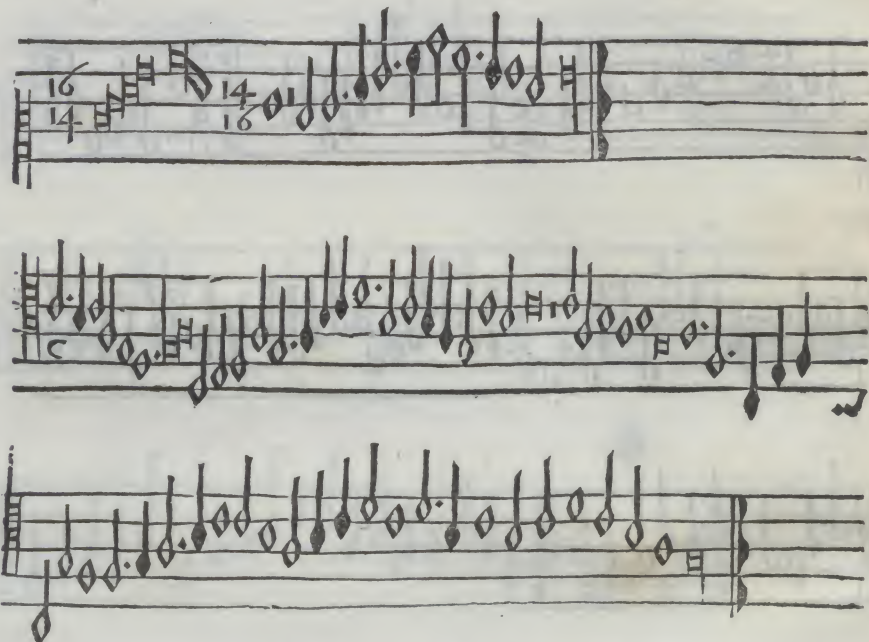 16 14
14 16
C